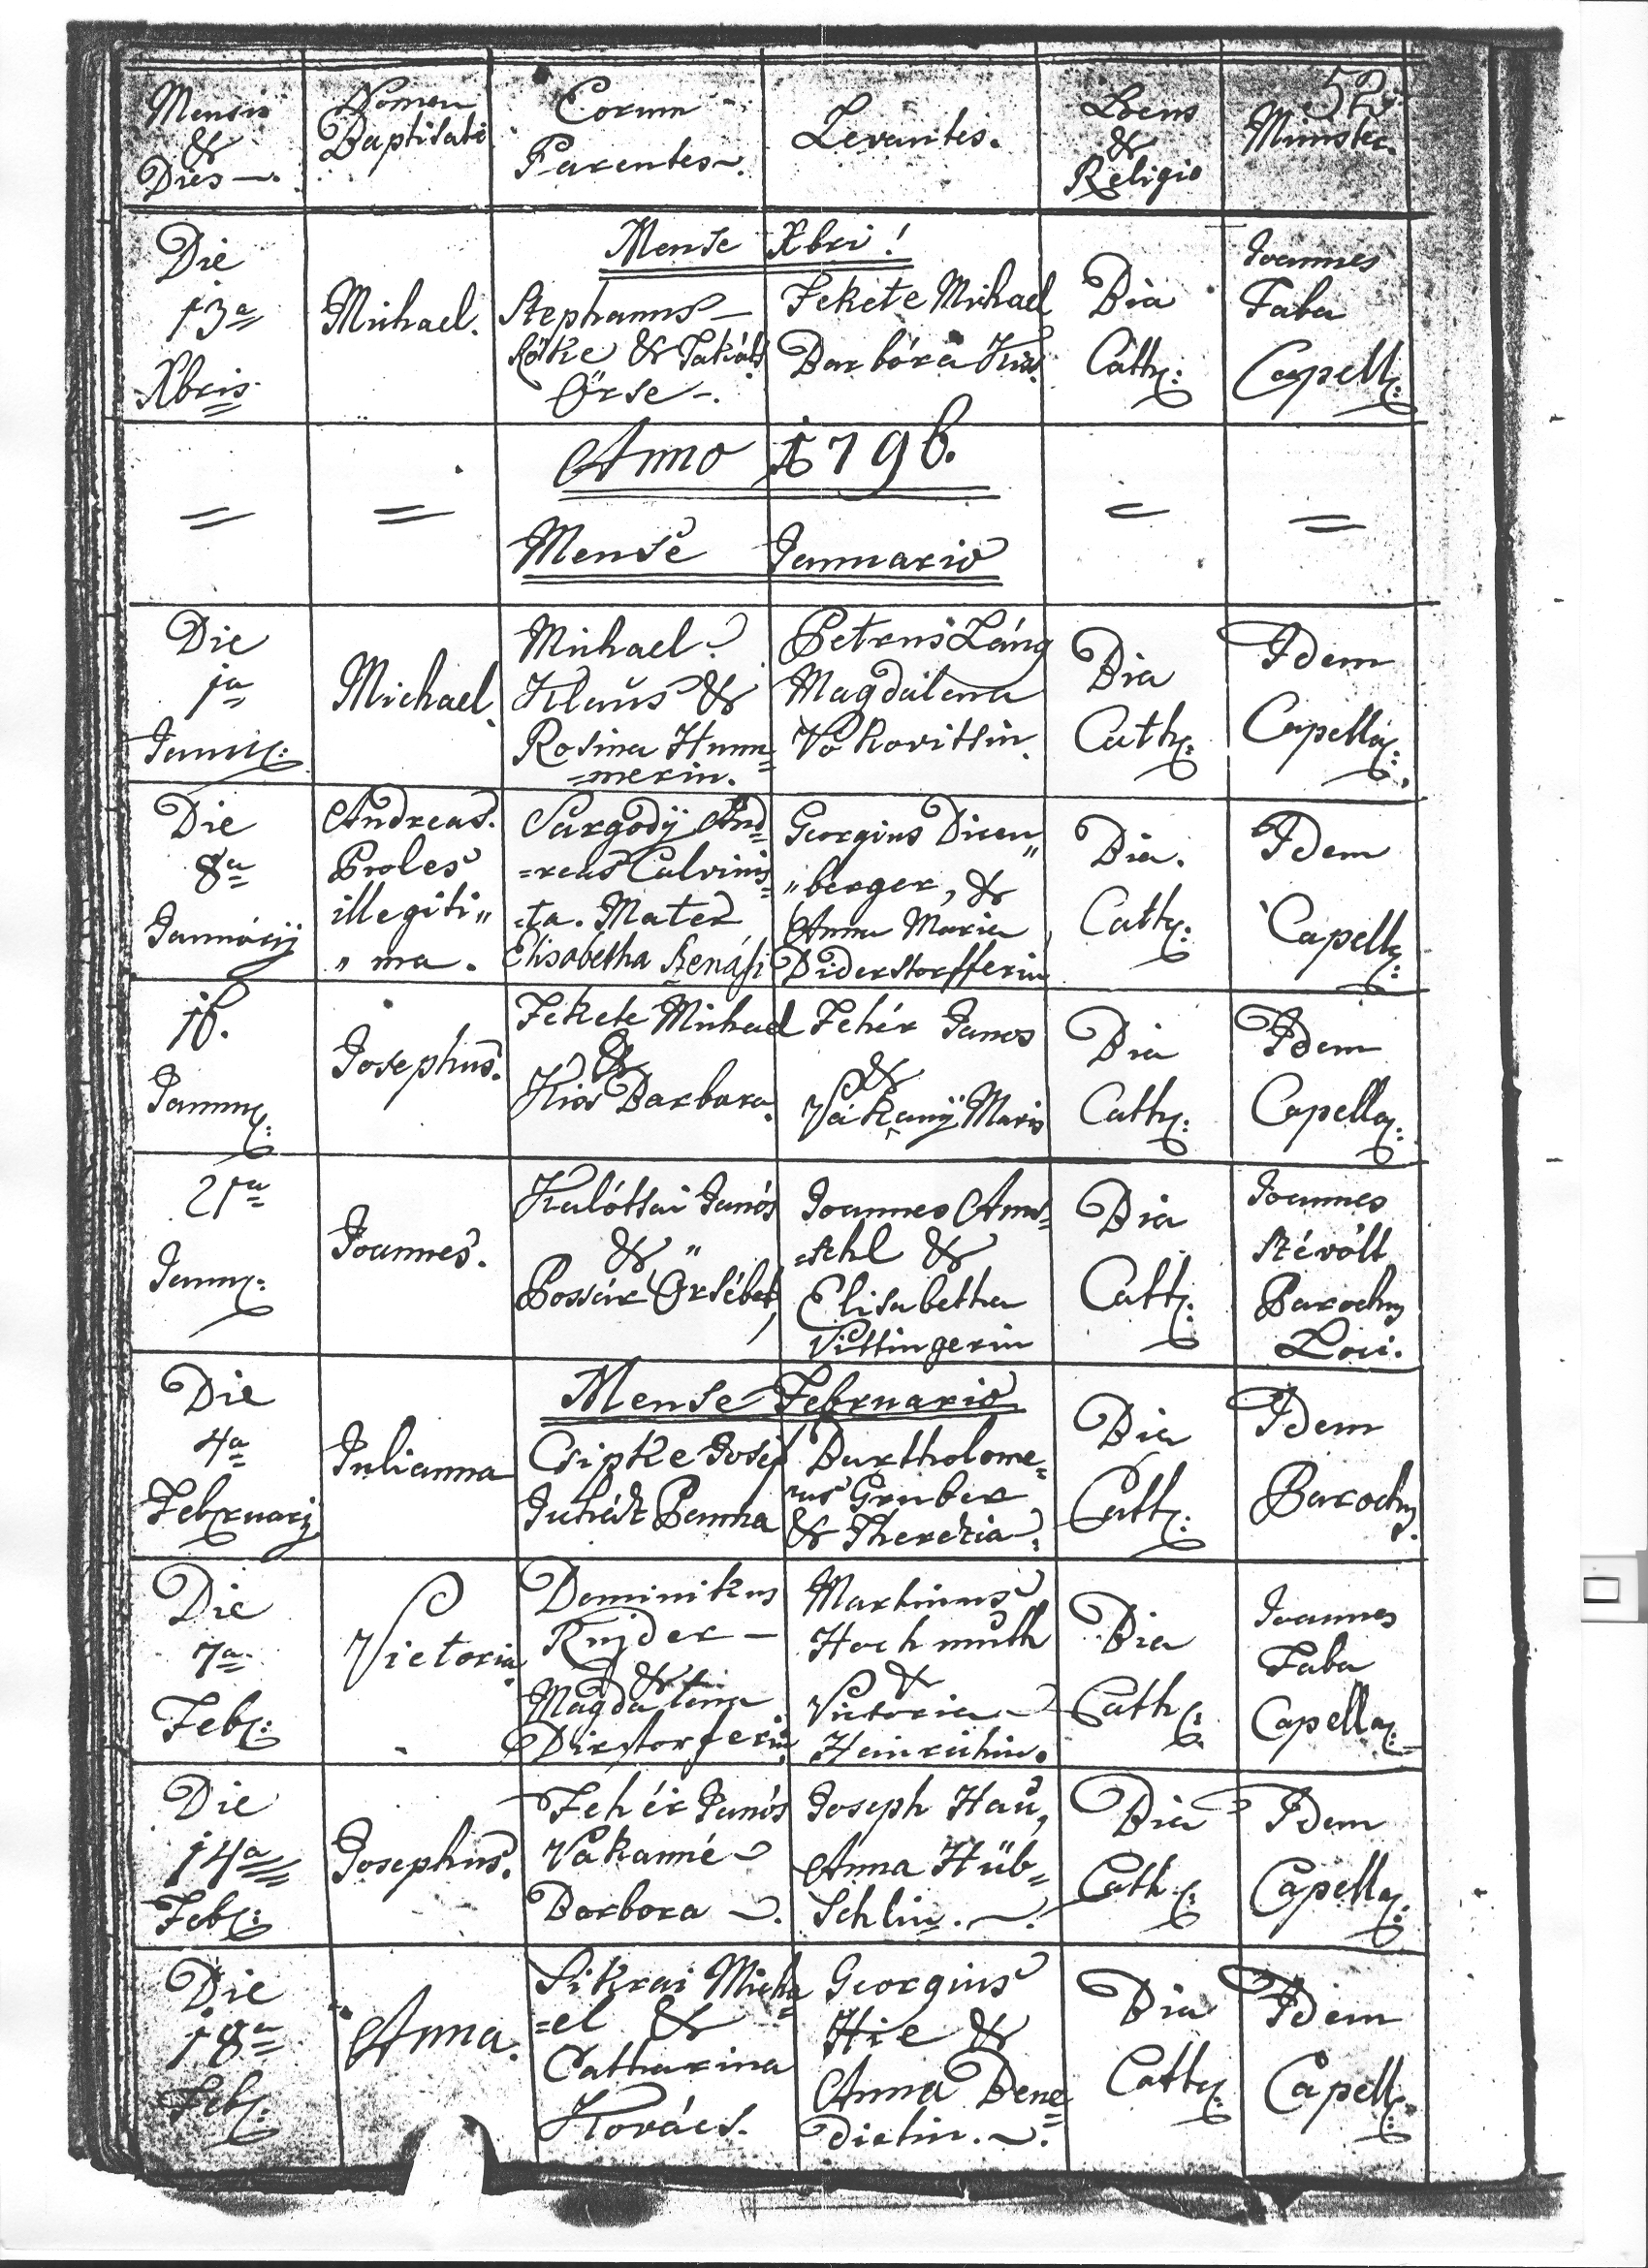 52.
Mensis
&
Dies.
Nomen
Baptisati
Eorum
Parentes.
Levantes.
Locus
&
Religio
Minister.
Mense Xbri!
Die
13a
Xbris.
Michael.
Stephanus
Röke & Takáts
Örse.
Fekete Michael
Barbóra Kis.
Bia
Cath:
Joannes
Faba
Capell:
Anno 1796.
Mense Januario
Die
1a
Januar:
Michael.
Michael
Klaus &
Rosina Hum=
=merin.
Petrus Láng
Magdalena
Vokovitsin.
Bia
Cath:
Idem
Capella:
Die
8a
Januárij
Andreas.
Proles
illegiti„
„ma.
Sargodÿ And=
=reas Calvinis=
=ta. Mater
Elisabetha
Georgius Dicen„
„berger, &
Anna Maria
Diderstorfferin
Bia.
Cath:
Idem
Capell:
16.
Januar:
Josephus.
Fekete Michael
&
Kis Barbara.
Fehér Janos
&
Vákanÿ Maris
Bia
Cath:
Idem
Capella:
21a
Januar:
Joannes.
Kalótsai Janós
&
Possár Örsébet,
Joannes Ams=
=tehl &
Elisabetha
Vittingerin
Bia
Cath:
Joannes
Révólt
Parochus
Loci.
Mense Februario
Die
4a
Februarij
Julianna
Csipke Josef
Juhász Panna
Bartholome=
us Gruber
& Therezia.
Bia
Cath:
Idem
Parochus.
Die
7a
Feb:
Victoria.
Dominikus
Rujder
&
Magdalena
Dirstorferin
Martinus
Hochmuth
&
Victoria
Heinrichin.
Bia
Cath:
Joannes
Faba
Capella:
Die
14a
Feb:
Josephus.
Fehér Janós
Vakanné
Barbora.
Joseph Hau,
Anna Hüb=
Schlin.
Bia
Cath:
Idem
Capella:
Die
18a
Feb:
Anna.
Sikrai Micha
=el &
Catharina
Kovács.
Georgius
Hie &
Anna Bene=
Dictin.
Bia
Cath:
Idem
Capell: